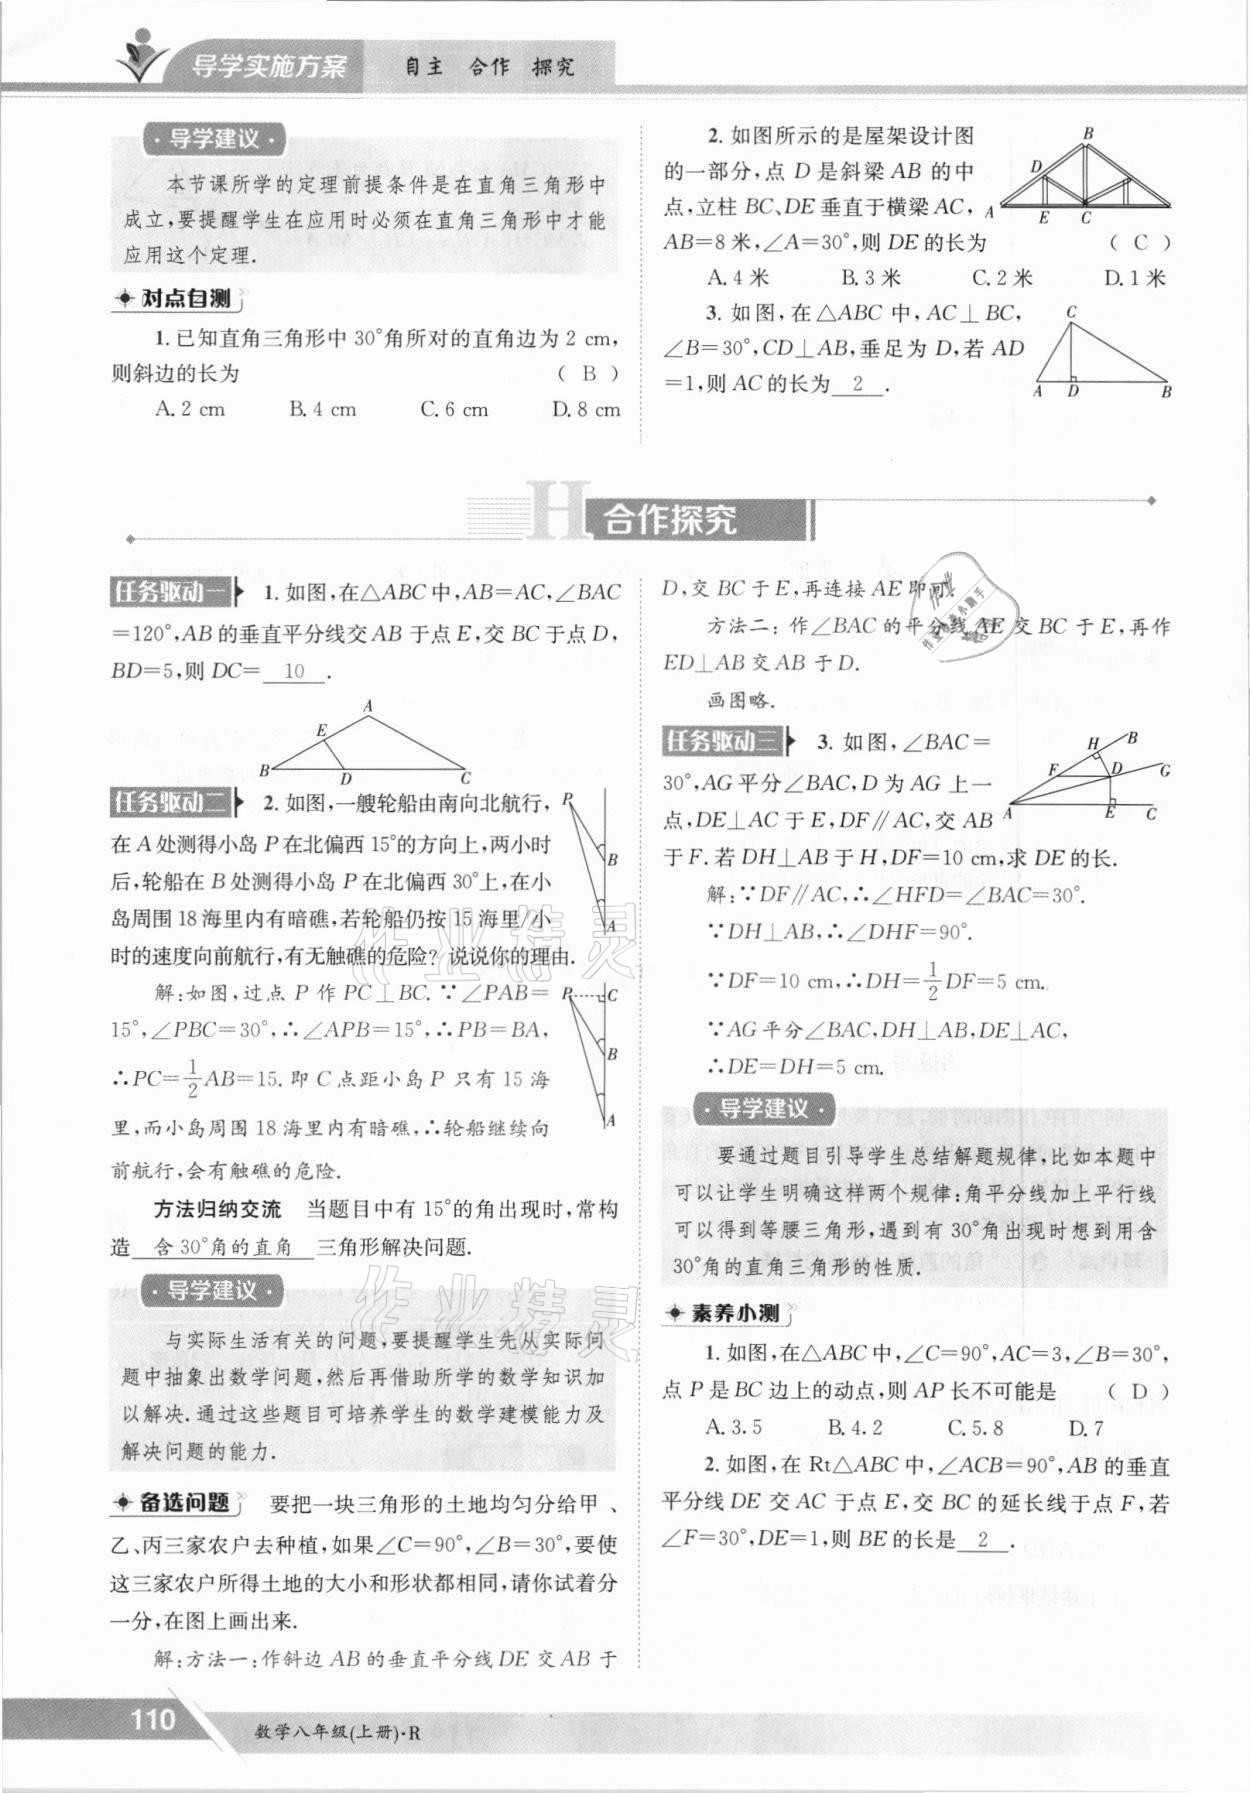 导学实施方案 自主 合作 探究
·导学建议·
本节课所学的定理前提条件是在直角三角形中
成立,要提醒学生在应用时必须在直角三角形中才能
应用这个定理.
对点自测
1. 已知直角三角形中 30°角所对的直角边为 2 cm,
则斜边的长为 ( B )
A. 2 cm B. 4 cm C. 6 cm D. 8 cm
2. 如图所示的是屋架设计图
的一部分,点 D 是斜梁 AB 的中
点,立柱 BC、DE 垂直于横梁 AC,
AB=8 米,∠A=30°,则 DE 的长为 ( C )
A. 4 米 B. 3 米 C. 2 米 D. 1 米
B
D
A
E
C
3. 如图,在△ABC 中,AC⊥BC,
∠B=30°,CD⊥AB,垂足为 D,若 AD
=1,则 AC 的长为 2 .
C
A D B
H 合作探究
任务驱动一 1. 如图,在△ABC 中,AB=AC,∠BAC
=120°,AB 的垂直平分线交 AB 于点 E,交 BC 于点 D,
BD=5,则 DC= 10 .
A
E
B D C
任务驱动二 2. 如图,一艘轮船由南向北航行,
在 A 处测得小岛 P 在北偏西 15°的方向上,两小时
后,轮船在 B 处测得小岛 P 在北偏西 30°上,在小
岛周围 18 海里内有暗礁,若轮船仍按 15 海里/小
时的速度向前航行,有无触礁的危险? 说说你的理由.
P
B
A
解:如图,过点 P 作 PC⊥BC. ∵∠PAB=
15°,∠PBC=30°,∴∠APB=15°,∴PB=BA,
∴PC=1/2AB=15. 即 C 点距小岛 P 只有 15 海
里,而小岛周围 18 海里内有暗礁,∴轮船继续向
前航行,会有触礁的危险.
P C
B
A
方法归纳交流 当题目中有 15°的角出现时,常构
造 含 30°角的直角 三角形解决问题.
·导学建议·
与实际生活有关的问题,要提醒学生先从实际问
题中抽象出数学问题,然后再借助所学的数学知识加
以解决.通过这些题目可培养学生的数学建模能力及
解决问题的能力.
备选问题 要把一块三角形的土地均匀分给甲、
乙、丙三家农户去种植,如果∠C=90°,∠B=30°,要使
这三家农户所得土地的大小和形状都相同,请你试着分
一分,在图上画出来.
解:方法一:作斜边 AB 的垂直平分线 DE 交 AB 于
D,交 BC 于 E,再连接 AE 即可.
方法二:作∠BAC 的平分线 AE 交 BC 于 E,再作
ED⊥AB 交 AB 于 D.
画图略.
任务驱动三 3. 如图,∠BAC=
30°,AG 平分∠BAC,D 为 AG 上一
点,DE⊥AC 于 E,DF∥AC,交 AB
于 F. 若 DH⊥AB 于 H,DF=10 cm,求 DE 的长.
H B
F D G
A E C
解:∵DF∥AC,∴∠HFD=∠BAC=30°.
∵DH⊥AB,∴∠DHF=90°.
∵DF=10 cm,∴DH=1/2DF=5 cm.
∵AG 平分∠BAC,DH⊥AB,DE⊥AC,
∴DE=DH=5 cm.
·导学建议·
要通过题目引导学生总结解题规律,比如本题中
可以让学生明确这样两个规律:角平分线加上平行线
可以得到等腰三角形,遇到有 30°角出现时想到用含
30°角的直角三角形的性质.
素养小测
1. 如图,在△ABC 中,∠C=90°,AC=3,∠B=30°,
点 P 是 BC 边上的动点,则 AP 长不可能是 ( D )
A. 3.5 B. 4.2 C. 5.8 D. 7
2. 如图,在 Rt△ABC 中,∠ACB=90°,AB 的垂直
平分线 DE 交 AC 于点 E,交 BC 的延长线于点 F,若
∠F=30°,DE=1,则 BE 的长是 2 .
作业精灵
作业精灵
110
数学八年级(上册)·R